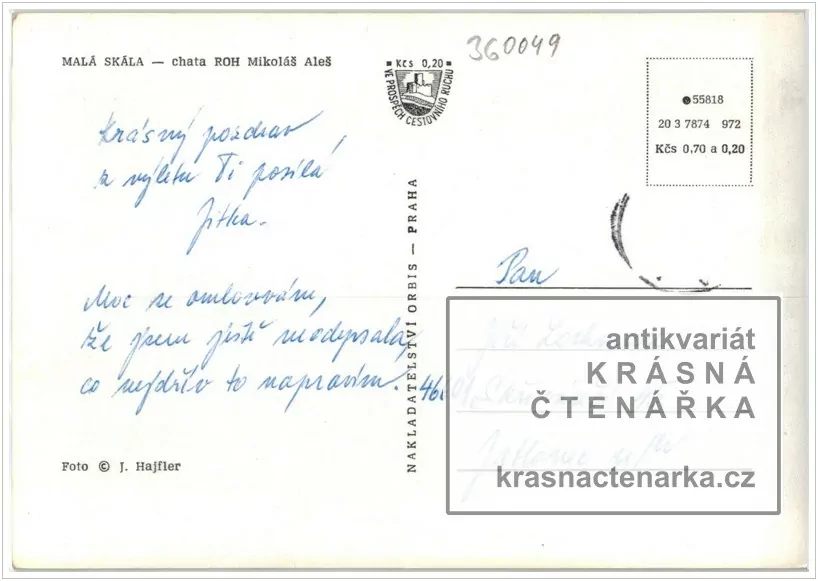 360049
MALÁ SKÁLA — chata ROH Mikoláš Aleš
Kčs 0,20
VE PROSPĚCH CESTOVNÍHO RUCHU
55818
20 3 7874 972
Kčs 0,70 a 0,20
Krásný pozdrav
z výletu Ti posílá
Jitka.
Moc se omlouvám,
že jsem ještě neodepsala,
co nejdřív to napravím.
Foto © J. Hajfler
NAKLADATELSTVÍ ORBIS — PRAHA
Pan
antikvariát
KRÁSNÁ
ČTENÁŘKA
krasnactenarka.cz